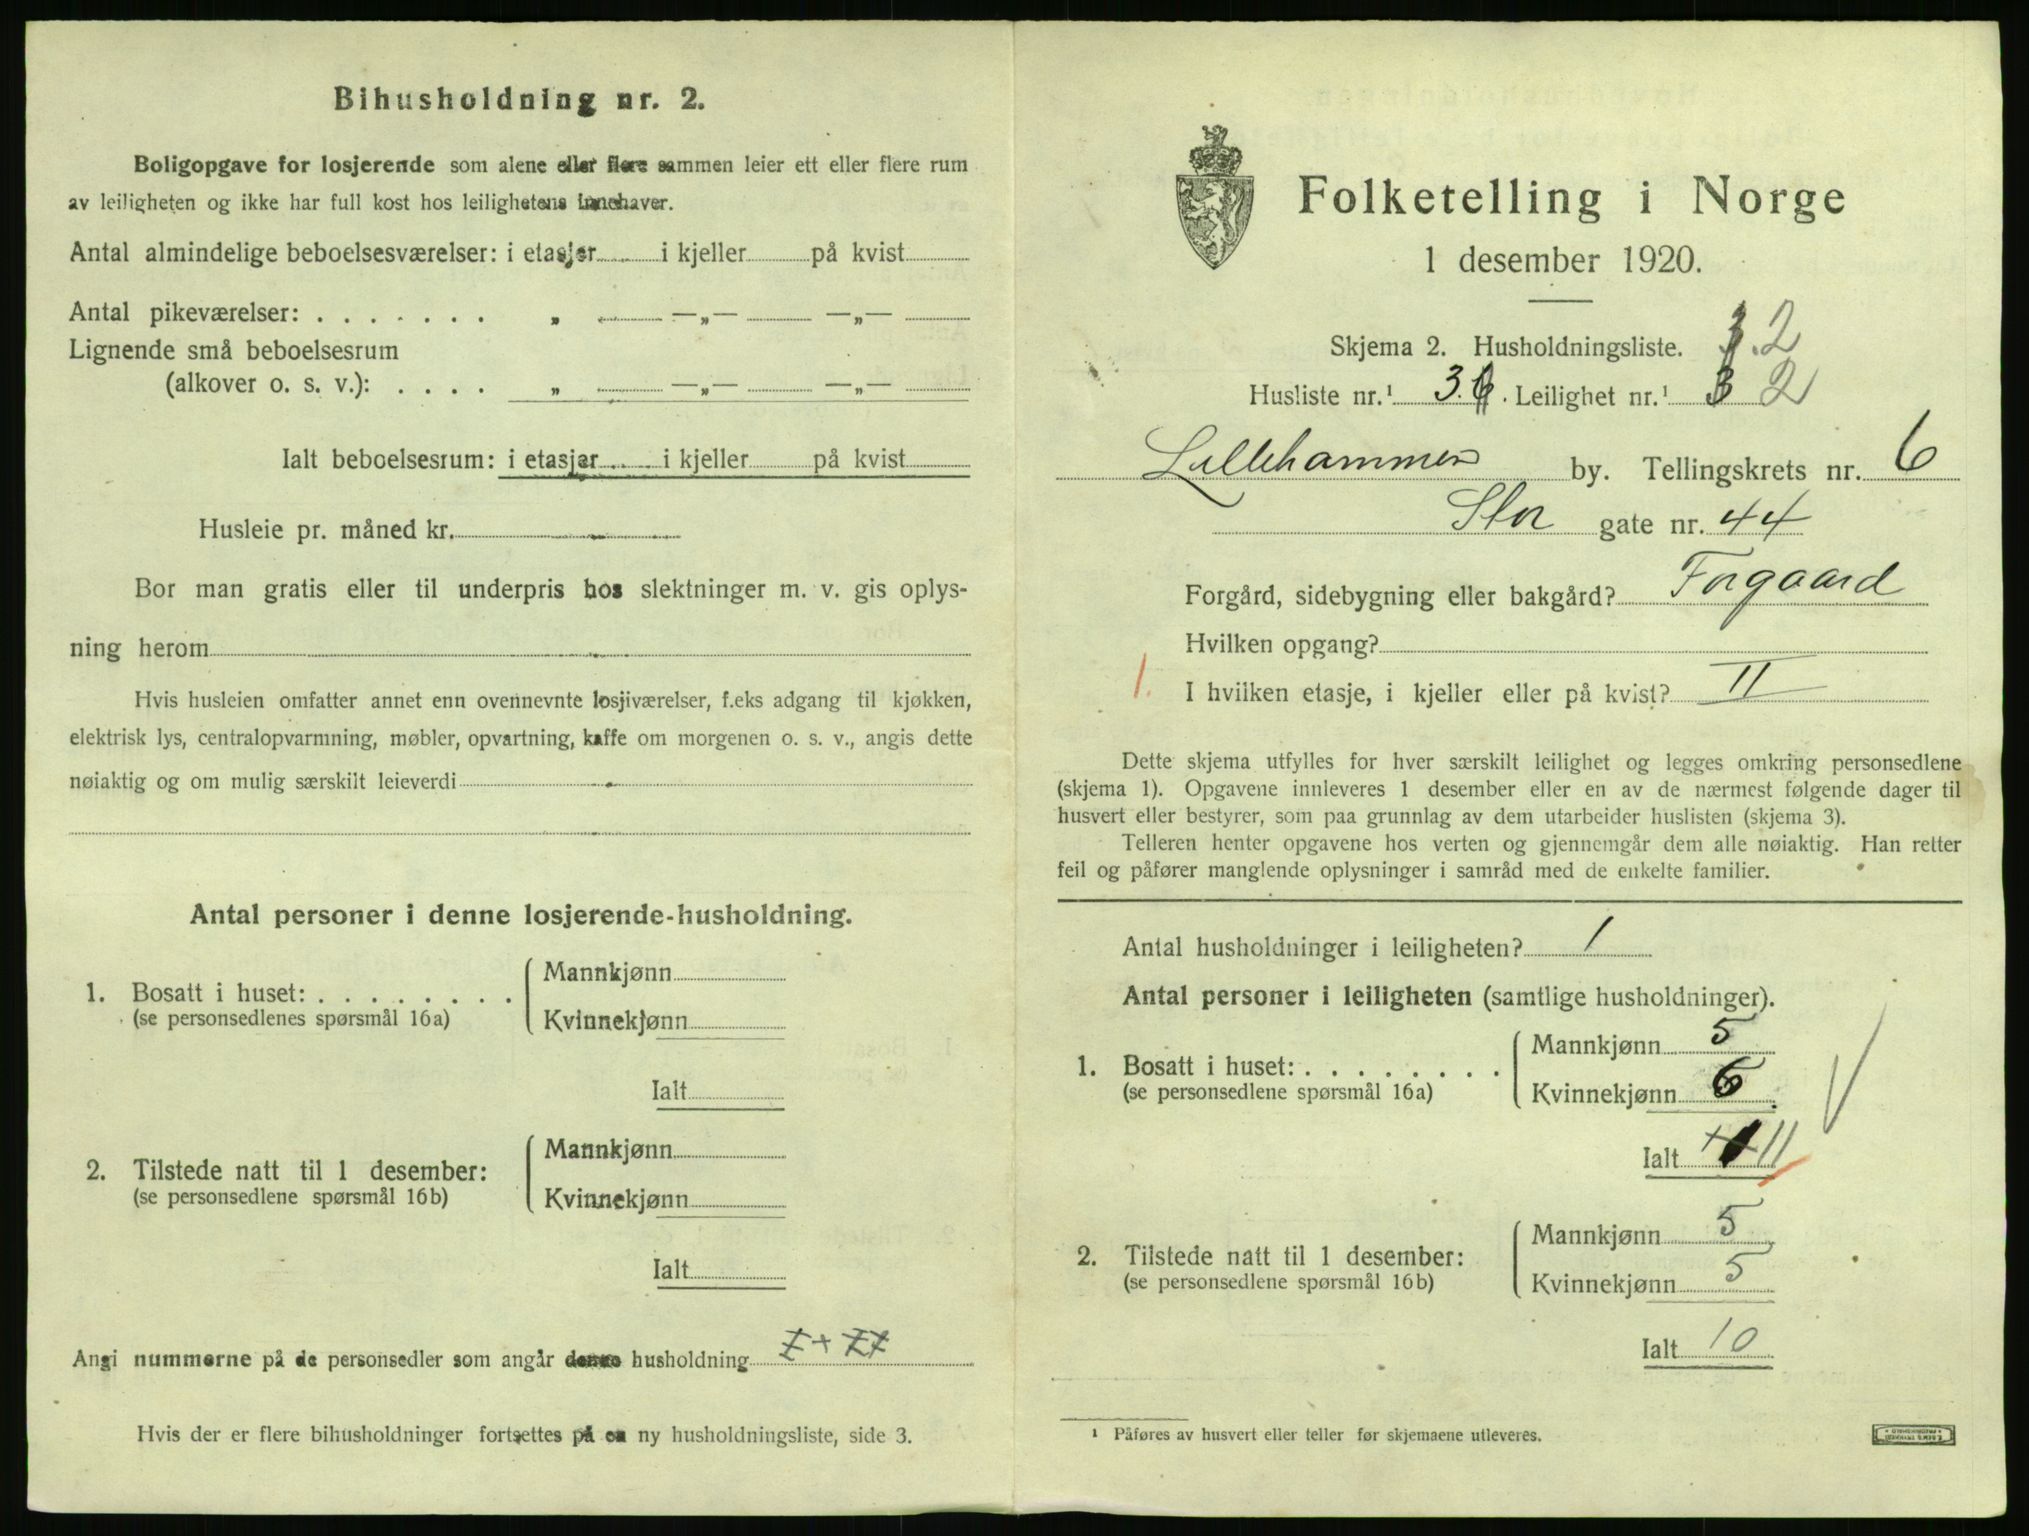 Bihusholdning nr. 2.
Boligopgave for losjerende som alene eller flere sammen leier ett eller flere rum
av leiligheten og ikke har full kost hos leilighetens innehaver.
Antal almindelige beboelsesværelser: i etasjer i kjeller på kvist
Antal pikeværelser: . . . . . . . „ —„— —„—
Lignende små beboelsesrum
(alkover o. s. v.): . . . . „ —„— —„—
Ialt beboelsesrum: i etasjer i kjeller på kvist
Husleie pr. måned kr.
Bor man gratis eller til underpris hos slektninger m. v. gis oplys-
ning herom
Hvis husleien omfatter annet enn ovennevnte losjiværelser, f.eks adgang til kjøkken,
elektrisk lys, centralopvarmning, møbler, opvartning, kaffe om morgenen o. s. v., angis dette
nøiaktig og om mulig særskilt leieverdi
Antal personer i denne losjerende-husholdning.
1. Bosatt i huset: . . . . . . . .
(se personsedlenes spørsmål 16a)
Mannkjønn
Kvinnekjønn
Ialt
2. Tilstede natt til 1 desember:
(se personsedlene spørsmål 16b)
Mannkjønn
Kvinnekjønn
Ialt
Angi nummerne på de personsedler som angår denne husholdning
Hvis der er flere bihusholdninger fortsettes på en ny husholdningsliste, side 3.
Folketelling i Norge
1 desember 1920.
Skjema 2. Husholdningsliste. 2
Husliste nr.¹ 3. Leilighet nr.¹ 2
Lillehammer by. Tellingskrets nr. 6
Stor gate nr. 44
Forgård, sidebygning eller bakgård? Forgaard
Hvilken opgang?
1. I hvilken etasje, i kjeller eller på kvist? II
Dette skjema utfylles for hver særskilt leilighet og legges omkring personsedlene
(skjema 1). Opgavene innleveres 1 desember eller en av de nærmest følgende dager til
husvert eller bestyrer, som paa grunnlag av dem utarbeider huslisten (skjema 3).
Telleren henter opgavene hos verten og gjennemgår dem alle nøiaktig. Han retter
feil og påfører manglende oplysninger i samråd med de enkelte familier.
Antal husholdninger i leiligheten? 1
Antal personer i leiligheten (samtlige husholdninger).
1. Bosatt i huset: . . . . . . . .
(se personsedlene spørsmål 16a)
Mannkjønn 5
Kvinnekjønn 6
Ialt 11
2. Tilstede natt til 1 desember:
(se personsedlene spørsmål 16b)
Mannkjønn 5
Kvinnekjønn 5
Ialt 10
¹ Påføres av husvert eller teller før skjemaene utleveres.